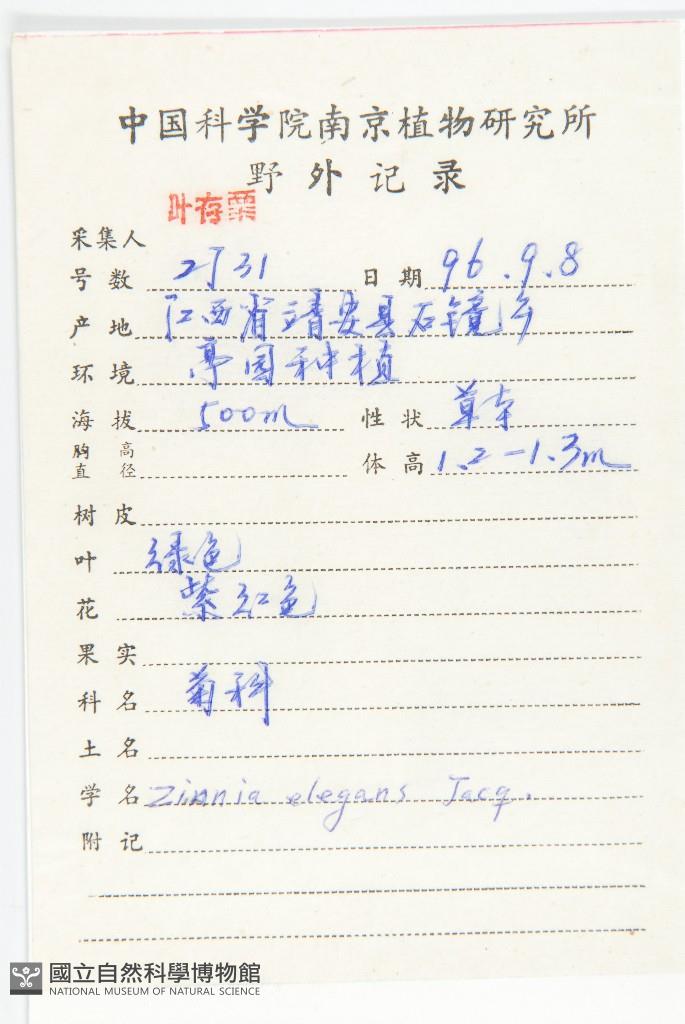 中国科学院南京植物研究所
野外记录
叶存粟
采集人
号数 2531 日期 96.9.8
产地 江西省靖安县石镜乡
环境 亭园种植
海拔 500m 性状 草本
胸高直径 体高 1.2-1.3m
树皮
叶 绿色
花 紫红色
果实
科名 菊科
土名
学名 Zinnia elegans Jacq.
附记
國立自然科學博物館
NATIONAL MUSEUM OF NATURAL SCIENCE